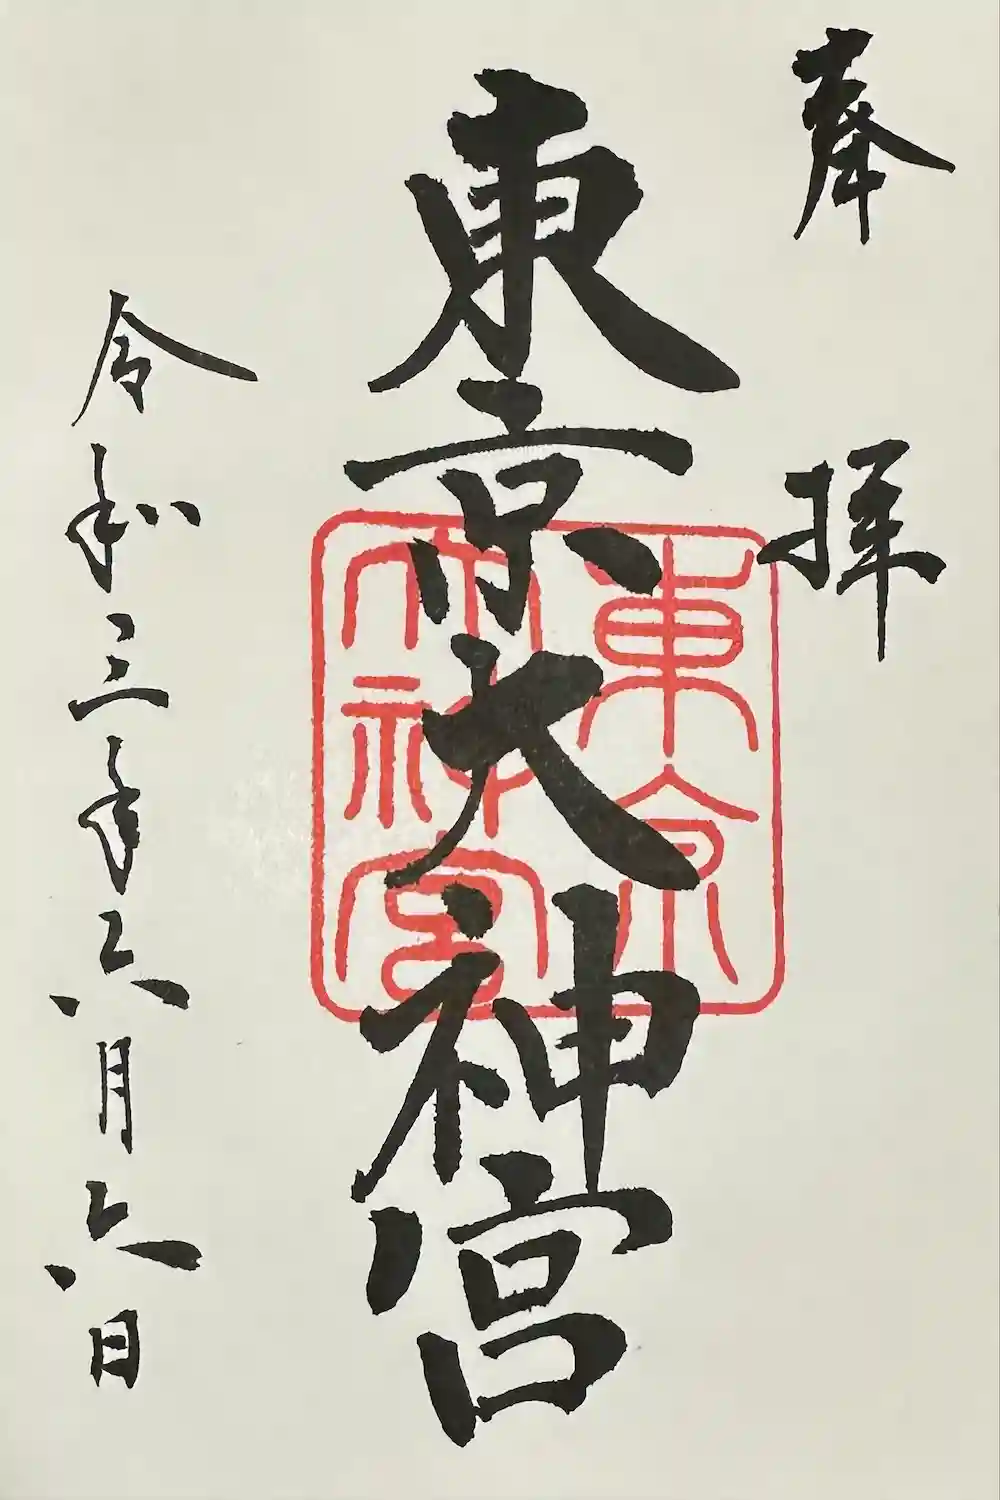 奉拝
東京大神宮
東京
大神宮
令和三年六月六日